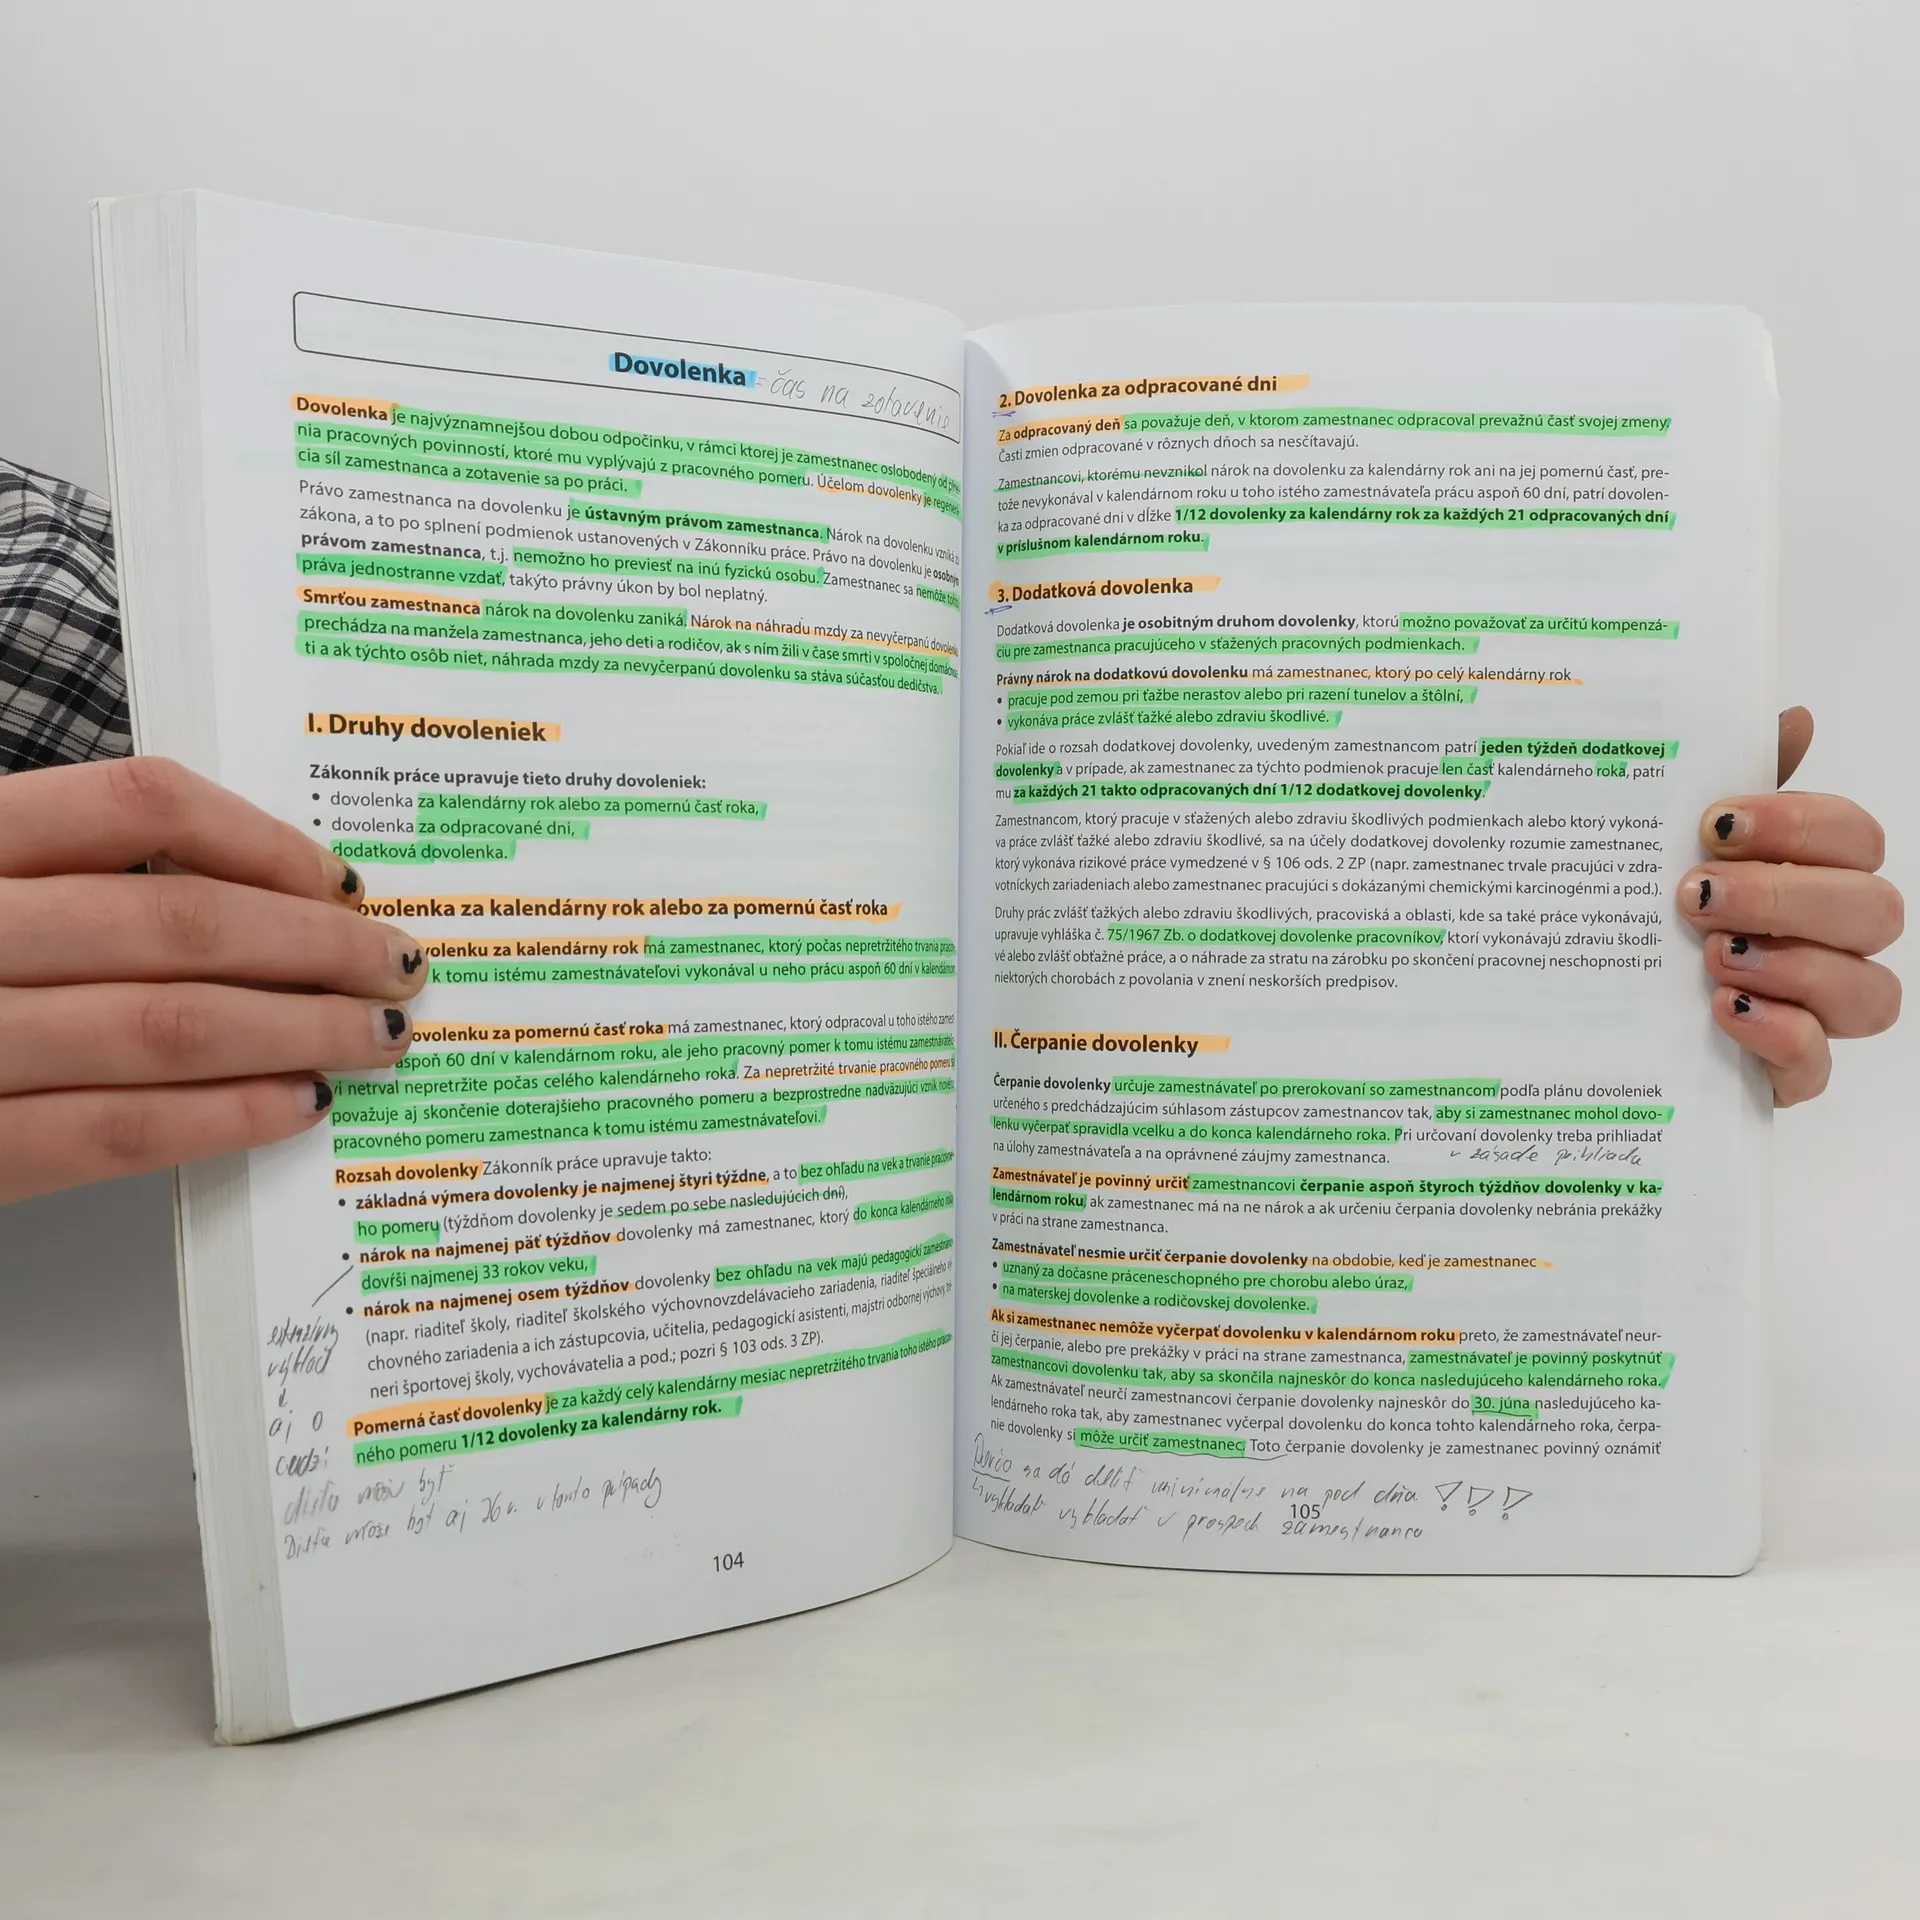 Dovolenka = čas na zotavenie
Dovolenka je najvýznamnejšou dobou odpočinku, v rámci ktorej je zamestnanec oslobodený od plne-
nia pracovných povinností, ktoré mu vyplývajú z pracovného pomeru. Účelom dovolenky je regenerá-
cia síl zamestnanca a zotavenie sa po práci.
Právo zamestnanca na dovolenku je ústavným právom zamestnanca. Nárok na dovolenku vzniká zo
zákona, a to po splnení podmienok ustanovených v Zákonníku práce. Právo na dovolenku je osobným
právom zamestnanca, t.j. nemožno ho previesť na inú fyzickú osobu. Zamestnanec sa nemôže tohto
práva jednostranne vzdať, takýto právny úkon by bol neplatný.
Smrťou zamestnanca nárok na dovolenku zaniká. Nárok na náhradu mzdy za nevyčerpanú dovolenku
prechádza na manžela zamestnanca, jeho deti a rodičov, ak s ním žili v čase smrti v spoločnej domácnos-
ti a ak týchto osôb niet, náhrada mzdy za nevyčerpanú dovolenku sa stáva súčasťou dedičstva.
I. Druhy dovoleniek
Zákonník práce upravuje tieto druhy dovoleniek:
• dovolenka za kalendárny rok alebo za pomernú časť roka,
• dovolenka za odpracované dni,
dodatková dovolenka.
ovolenka za kalendárny rok alebo za pomernú časť roka
volenku za kalendárny rok má zamestnanec, ktorý počas nepretržitého trvania
k tomu istému zamestnávateľovi vykonával u neho prácu aspoň 60 dní v kalendárnom
ovolenku za pomernú časť roka má zamestnanec, ktorý odpracoval u toho istého
aspoň 60 dní v kalendárnom roku, ale jeho pracovný pomer k tomu istému zamestnávateľo-
vi netrval nepretržite počas celého kalendárneho roka. Za nepretržité trvanie pracovného pomeru sa
považuje aj skončenie doterajšieho pracovného pomeru a bezprostredne nadväzujúci vznik nového
pracovného pomeru zamestnanca k tomu istému zamestnávateľovi.
Rozsah dovolenky Zákonník práce upravuje takto:
• základná výmera dovolenky je najmenej štyri týždne, a to bez ohľadu na vek a trvanie pracovné-
ho pomeru (týždňom dovolenky je sedem po sebe nasledujúcich dní),
• nárok na najmenej päť týždňov dovolenky má zamestnanec, ktorý do konca kalendárneho roka
dovŕši najmenej 33 rokov veku,
• nárok na najmenej osem týždňov dovolenky bez ohľadu na vek majú pedagogickí zamestnanci
(napr. riaditeľ školy, riaditeľ školského výchovnovzdelávacieho zariadenia, riaditeľ špeciálneho vý-
chovného zariadenia a ich zástupcovia, učitelia, pedagogickí asistenti, majstri odbornej výchovy, tré-
neri športovej školy, vychovávatelia a pod.; pozri § 103 ods. 3 ZP).
Pomerná časť dovolenky je za každý celý kalendárny mesiac nepretržitého trvania toho istého pracov-
ného pomeru 1/12 dovolenky za kalendárny rok.
výklad
aj o
môže byť
môže byť aj 26 r. v tomto prípady
104
2. Dovolenka za odpracované dni
Za odpracovaný deň sa považuje deň, v ktorom zamestnanec odpracoval prevažnú časť svojej zmeny.
Časti zmien odpracované v rôznych dňoch sa nesčítavajú.
Zamestnancovi, ktorému nevznikol nárok na dovolenku za kalendárny rok ani na jej pomernú časť, pre-
tože nevykonával v kalendárnom roku u toho istého zamestnávateľa prácu aspoň 60 dní, patrí dovolen-
ka za odpracované dni v dĺžke 1/12 dovolenky za kalendárny rok za každých 21 odpracovaných dní
v príslušnom kalendárnom roku.
3. Dodatková dovolenka
Dodatková dovolenka je osobitným druhom dovolenky, ktorú možno považovať za určitú kompenzá-
ciu pre zamestnanca pracujúceho v sťažených pracovných podmienkach.
Právny nárok na dodatkovú dovolenku má zamestnanec, ktorý po celý kalendárny rok
• pracuje pod zemou pri ťažbe nerastov alebo pri razení tunelov a štôlní,
• vykonáva práce zvlášť ťažké alebo zdraviu škodlivé.
Pokiaľ ide o rozsah dodatkovej dovolenky, uvedeným zamestnancom patrí jeden týždeň dodatkovej
dovolenky a v prípade, ak zamestnanec za týchto podmienok pracuje len časť kalendárneho roka, patrí
mu za každých 21 takto odpracovaných dní 1/12 dodatkovej dovolenky.
Zamestnancom, ktorý pracuje v sťažených alebo zdraviu škodlivých podmienkach alebo ktorý vykoná-
va práce zvlášť ťažké alebo zdraviu škodlivé, sa na účely dodatkovej dovolenky rozumie zamestnanec,
ktorý vykonáva rizikové práce vymedzené v § 106 ods. 2 ZP (napr. zamestnanec trvale pracujúci v zdra-
votníckych zariadeniach alebo zamestnanec pracujúci s dokázanými chemickými karcinogénmi a pod.).
Druhy prác zvlášť ťažkých alebo zdraviu škodlivých, pracoviská a oblasti, kde sa také práce vykonávajú,
upravuje vyhláška č. 75/1967 Zb. o dodatkovej dovolenke pracovníkov, ktorí vykonávajú zdraviu škodli-
vé alebo zvlášť obťažné práce, a o náhrade za stratu na zárobku po skončení pracovnej neschopnosti pri
niektorých chorobách z povolania v znení neskorších predpisov.
II. Čerpanie dovolenky
Čerpanie dovolenky určuje zamestnávateľ po prerokovaní so zamestnancom podľa plánu dovoleniek
určeného s predchádzajúcim súhlasom zástupcov zamestnancov tak, aby si zamestnanec mohol dovo-
lenku vyčerpať spravidla vcelku a do konca kalendárneho roka. Pri určovaní dovolenky treba prihliadať
na úlohy zamestnávateľa a na oprávnené záujmy zamestnanca. v zásade prihliada
Zamestnávateľ je povinný určiť zamestnancovi čerpanie aspoň štyroch týždňov dovolenky v ka-
lendárnom roku, ak zamestnanec má na ne nárok a ak určeniu čerpania dovolenky nebránia prekážky
v práci na strane zamestnanca.
Zamestnávateľ nesmie určiť čerpanie dovolenky na obdobie, keď je zamestnanec
• uznaný za dočasne práceneschopného pre chorobu alebo úraz,
• na materskej dovolenke a rodičovskej dovolenke.
Ak si zamestnanec nemôže vyčerpať dovolenku v kalendárnom roku preto, že zamestnávateľ neur-
čí jej čerpanie, alebo pre prekážky v práci na strane zamestnanca, zamestnávateľ je povinný poskytnúť
zamestnancovi dovolenku tak, aby sa skončila najneskôr do konca nasledujúceho kalendárneho roka.
Ak zamestnávateľ neurčí zamestnancovi čerpanie dovolenky najneskôr do 30. júna nasledujúceho ka-
lendárneho roka tak, aby zamestnanec vyčerpal dovolenku do konca tohto kalendárneho roka, čerpa-
nie dovolenky si môže určiť zamestnanec. Toto čerpanie dovolenky je zamestnanec povinný oznámiť
sa dá deliť minimálne na pol dňa !!!
vykladať vykladať v prospech zamestnanca
105